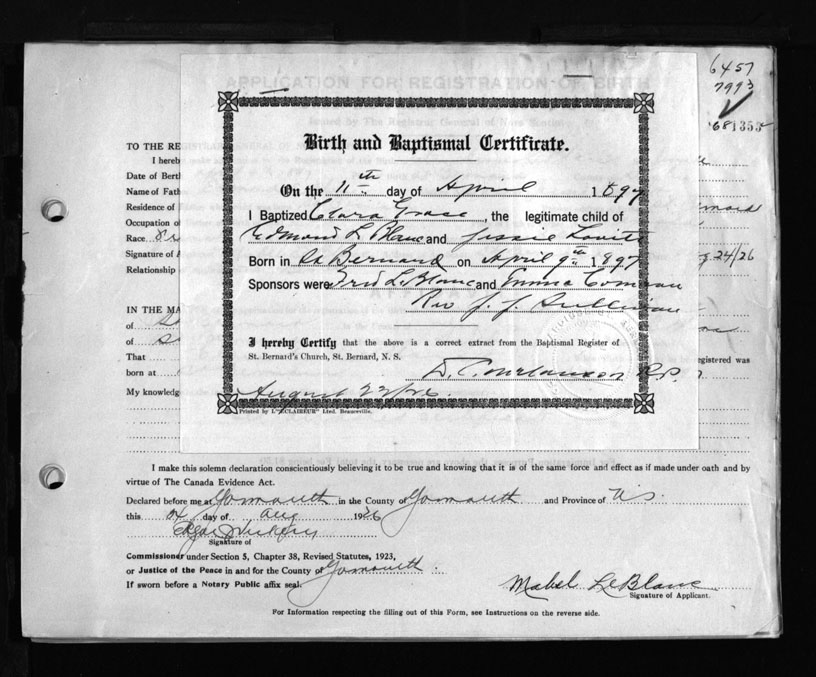 6457
7993
681355
APPLICATION FOR REGISTRATION OF BIRTH
Issued by The Registrar General of Nova Scotia
TO THE RE
I hereb
Date of Birt
Name of Fath
Residence of
Occupation of
Race
Signature of A
Relationship
24/26
IN THE MA
of
of
That
born at
My knowledg
egistered was
Birth and Baptismal Certificate.
On the 11th day of April 1897
I Baptized Clara Grace, the legitimate child of
Edmond L Blanc and Jessie Lovitt
Born in St Bernard on April 9th 1897
Sponsors were Fred L. Blanc and Emma Comeau
Rev J. J Sullivan
I hereby Certify that the above is a correct extract from the Baptismal Register of
St. Bernard's Church, St. Bernard, N. S.
P.P.
August 22/26.
Printed by L'"ECLAIREUR" Lted. Beauceville.
I make this solemn declaration conscientiously believing it to be true and knowing that it is of the same force and effect as if made under oath and by
virtue of The Canada Evidence Act.
Declared before me at Yarmouth in the County of Yarmouth and Province of N S.
this 24 day of Aug 1926
Signature of
Commissioner under Section 5, Chapter 38, Revised Statutes, 1923,
or Justice of the Peace in and for the County of Yarmouth.
If sworn before a Notary Public affix seal.
Mabel LeBlanc
Signature of Applicant.
For Information respecting the filling out of this Form, see Instructions on the reverse side.